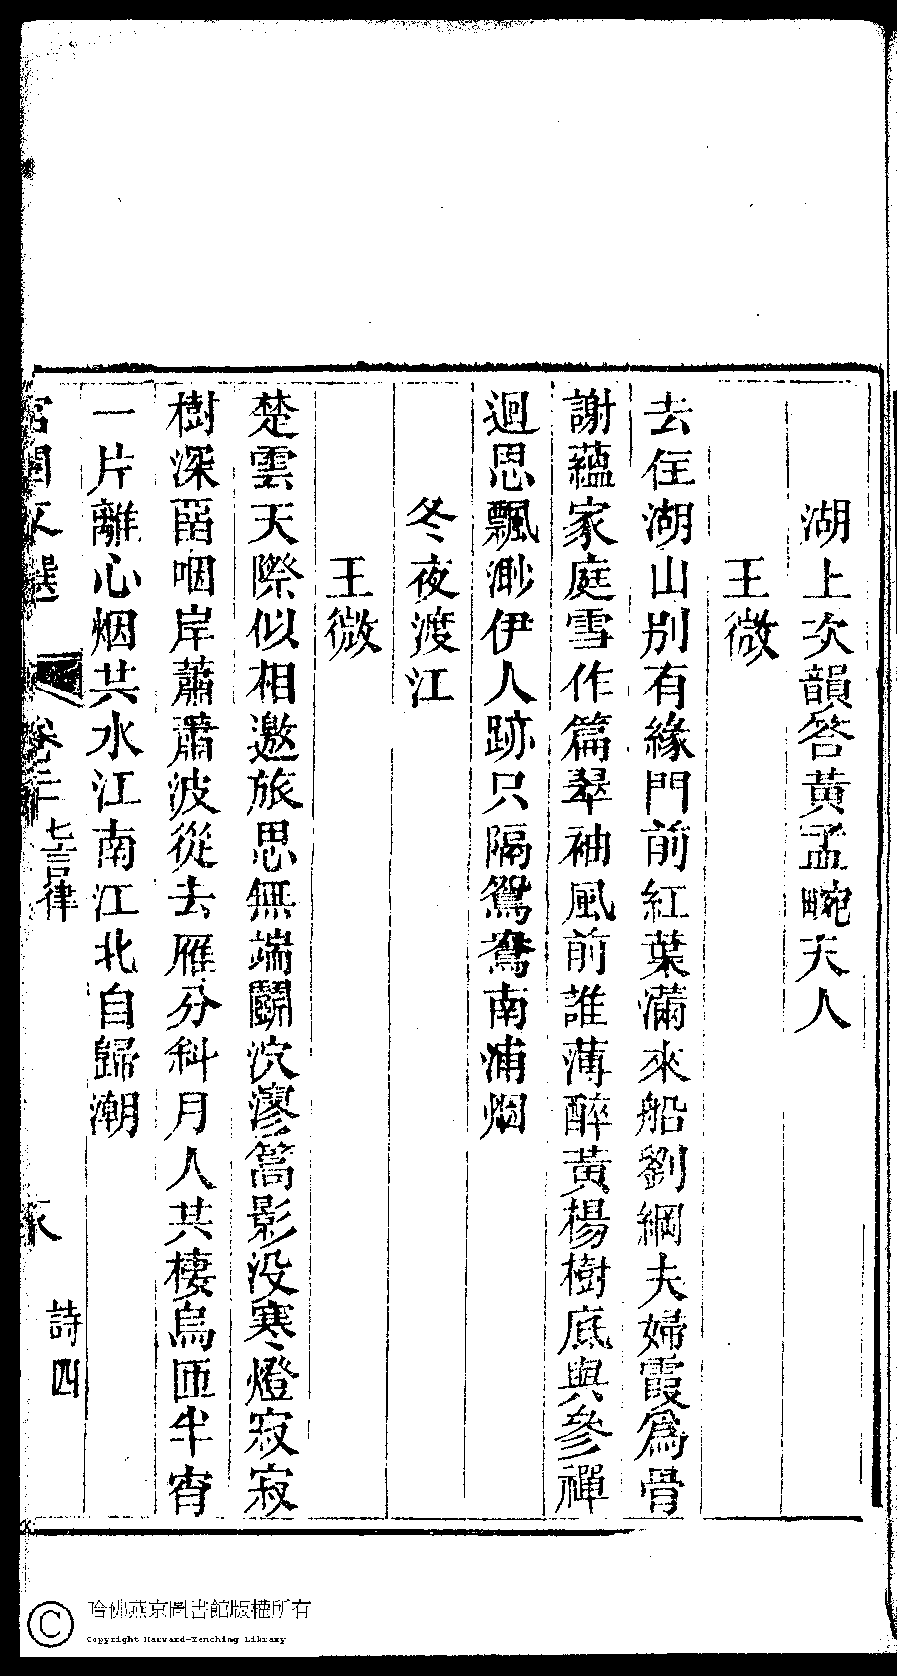 湖上次韻答黃孟畹夫人
王微
去住湖山別有緣門前紅葉滿來船劉綱夫婦霞爲骨
謝蘊家庭雪作篇翠袖風前誰薄醉黃楊樹底與參禪
迴思飄渺伊人跡只隔鴛鴦南浦烟
冬夜渡江
王微
楚雲天際似相邀旅思無端鬬泬漻篙影没寒燈寂寂
樹深咽岸蕭蕭波從去雁分科月人共棲烏匝半宵
一片離心烟共水江南江北自歸潮
宮閨文選
卷二
七言律
詩四
哈佛燕京圖書館版權所有
Copyright Harvard-Yenching Library